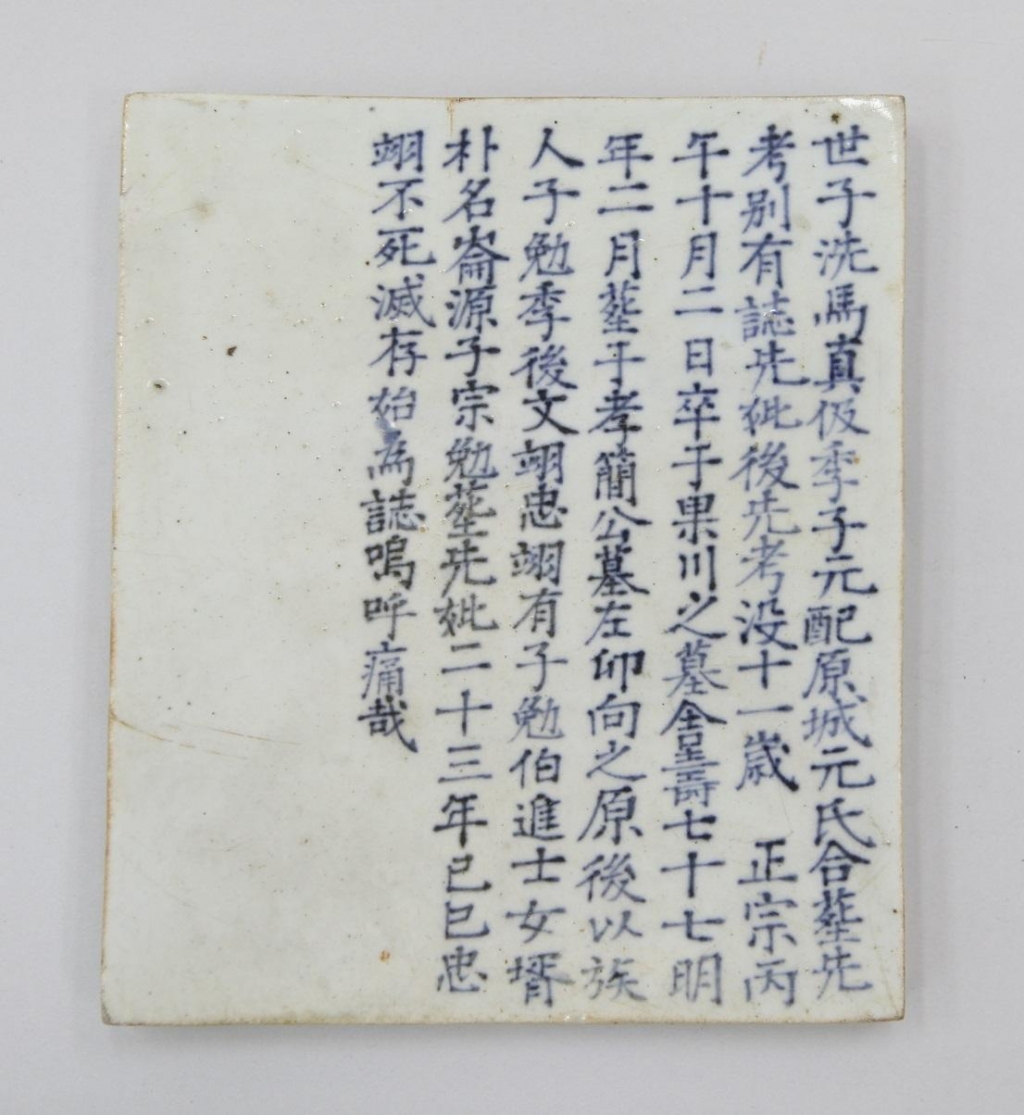 世子洗馬真伋季子元配原城元氏合塟先
考別有誌先妣後先考没十一歲　正宗丙
午十月二日卒于果川之墓舍壽七十七明
年二月塟于孝簡公墓左卯向之原後以族
人子勉季後文翊忠翊有子勉伯進士女壻
朴名崙源子宗勉塟先妣二十三年己巳忠
翊不死滅存始為誌嗚呼痛哉